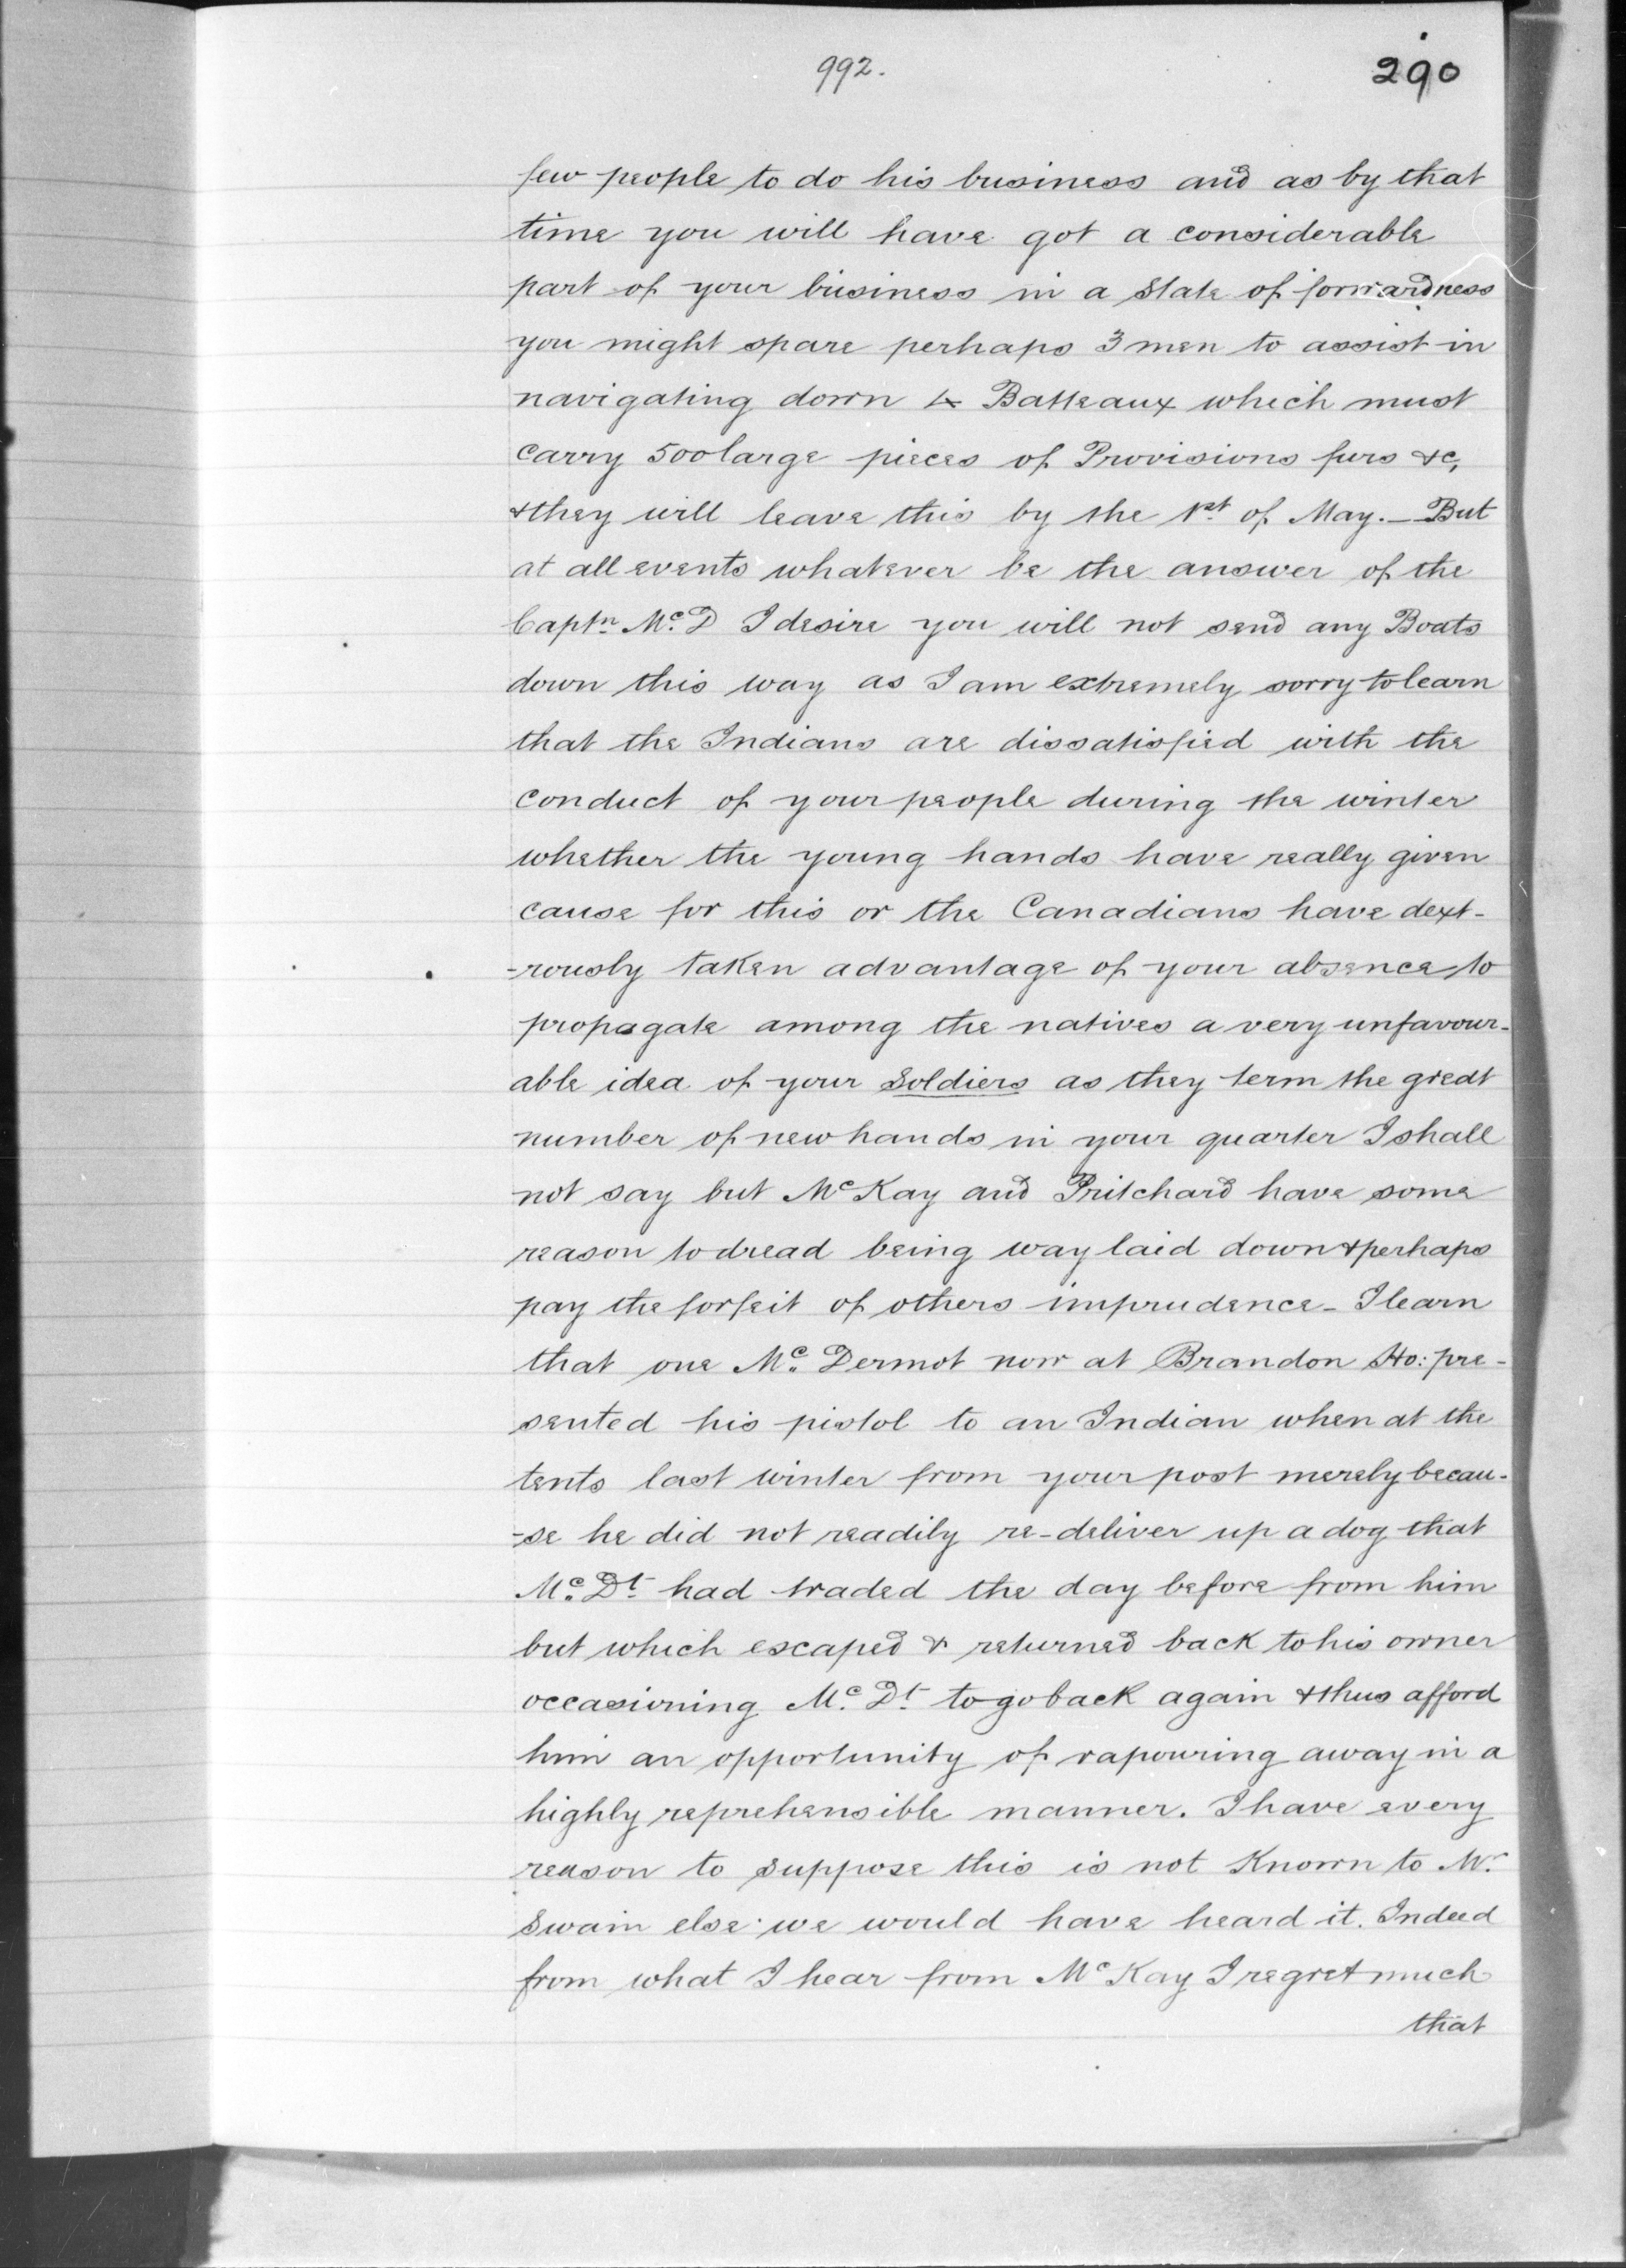 992.
290
few people to do his business and as by that
time you will have got a considerable
part of your business in a State of forwardness
you might spare perhaps 3 men to assist in
navigating down 4 Batteaux which must
carry 500 large pieces of Provisions furs &c,
& they will leave this by the 1st of May. — But
at all events whatever be the answer of the
Captn McD I desire you will not send any Boats
down this way as I am extremely sorry to learn
that the Indians are dissatisfied with the
conduct of your people during the winter
whether the young hands have really given
cause for this or the Canadians have dext-
-rously taken advantage of your absence to
propagate among the natives a very unfavour-
able idea of your Soldiers as they term the great
number of new hands in your quarter I shall
not say but McKay and Pritchard have some
reason to dread being way laid down & perhaps
pay the forfeit of others imprudence - I learn
that one Mc Dermot now at Brandon Ho: pre-
sented his pistol to an Indian when at the
tents last winter from your post merely becau-
-se he did not readily re-deliver up a dog that
Mc Dt had traded the day before from him
but which escaped & returned back to his owner
occasioning Mc Dt to go back again & thus afford
him an opportunity of vapouring away in a
highly reprehensible manner. I have every
reason to suppose this is not Known to Mr
Swain else we would have heard it. Indeed
from what I hear from McKay I regret much
that